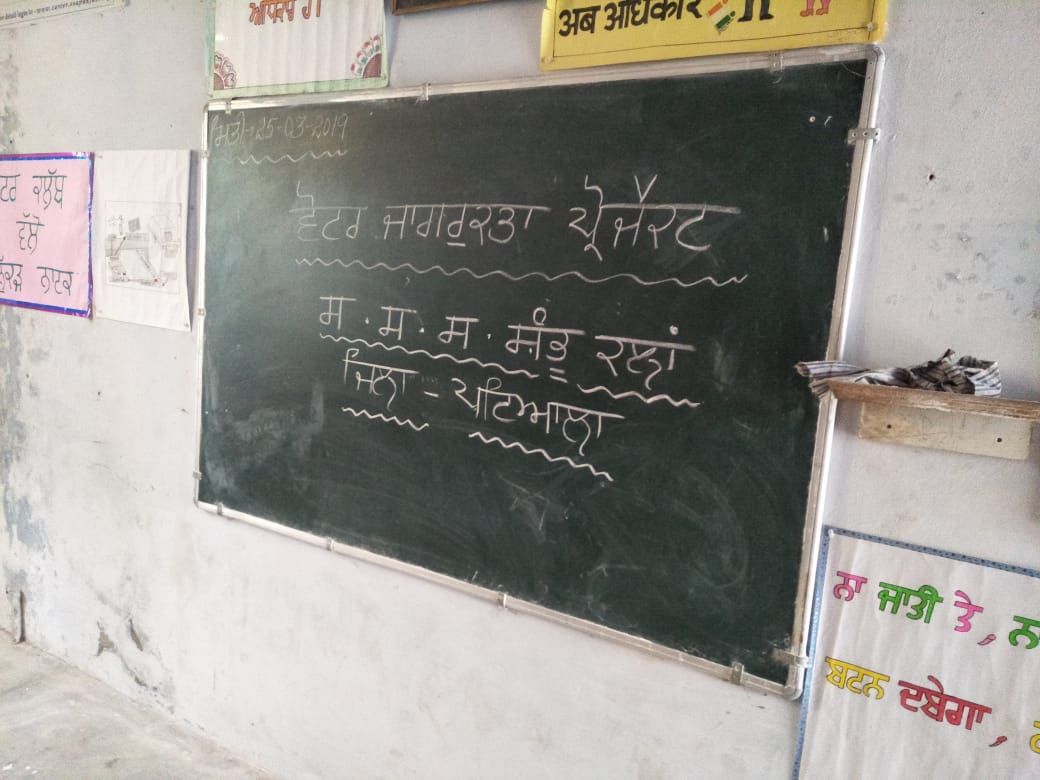 ਅਧਿਕਾਰ ਹੈ।
अब अधिकार
ਮਿਤੀ→25-03-2019
ਵੋਟਰ ਜਾਗਰੁਕਤਾ ਪ੍ਰੋਜੈਕਟ
ਸ.ਸ.ਸ. ਸ਼ੰਭੂ ਕਲਾਂ
ਜਿਲਾ - ਪਟਿਆਲਾ
ਟਰ ਕਲੱਬ
ਵੱਲੋਂ
ਨੁੱਕੜ ਨਾਟਕ
ਨਾ ਜਾਤੀ ਤੇ,
ਬਟਨ ਦਬੇਗਾ,